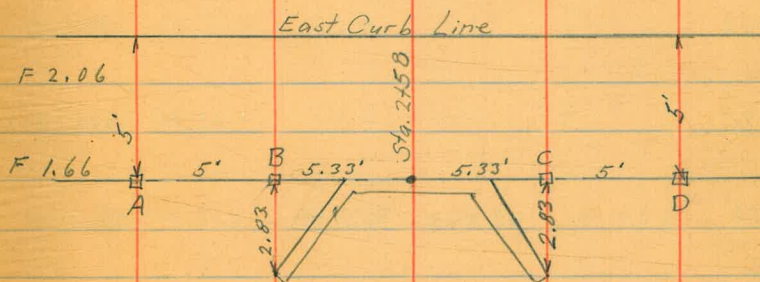 East Curb Line
F 2.06
Sta. 2+58
5'
5'
F 1.66
5'
B
5.33'
5.33'
C
5'
A
D
2.83
2.83